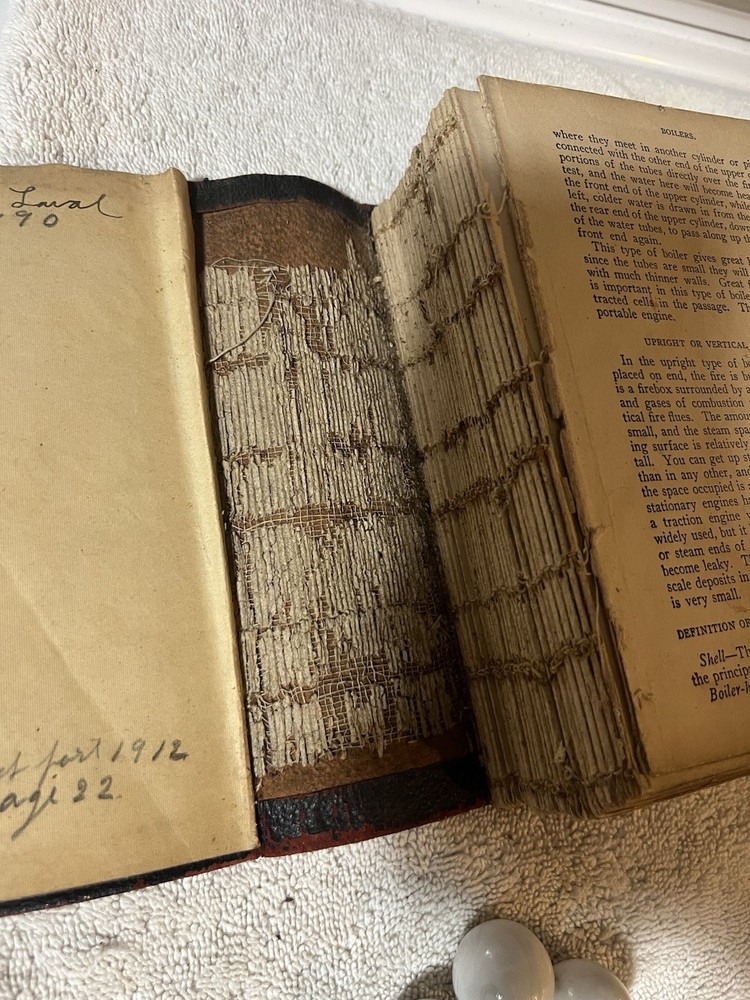 Laval
90
1912
22
BOILERS.
where they meet in another cylinder or
connected with the other end of the upper
portions of the tubes directly over the
test, and the water here will become
the front end of the upper cylinder, while
left, colder water is drawn in from the
the rear end of the upper cylinder, down
of the water tubes, to pass along up
front end again.
This type of boiler gives great
since the tubes are small they will
with much thinner walls. Great
is important in this type of
tracted cells in the passage.
portable engine.
UPRIGHT OR VERTICAL
In the upright type of
placed on end, the fire is
is a firebox surrounded by a
and gases of combustion
tical fire flues. The
small, and the steam
ing surface is relatively
tall. You can get up
than in any other,
the space occupied is
stationary engines
a traction engine
widely used, but it
or steam ends of
become leaky.
scale deposits in
is very small.
DEFINITION
Shell—
the